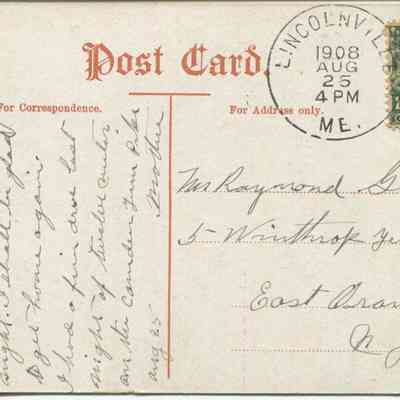 Post Card.
For Correspondence.
For Address only.
LINCOLNVILLE
1908
AUG
25
4 PM
ME.
Mr Raymond G
5- Winthrop Te
East Oran
N. J
night. I shall be glad
to get home again.
I had a fine drive last
night of twelve miles
on the Camden
Mother
Aug 25